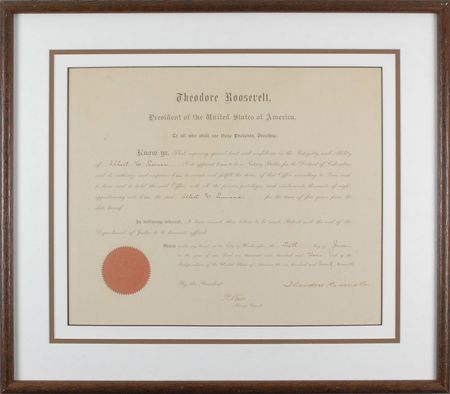 Theodore Roosevelt,
President of the United States of America,
To all who shall see these Presents, Greeting:
Know ye, That reposing special trust and confidence in the Integrity and Ability
of Albert W. I do appoint him to be a Notary Public for the District of Columbia
and do authorize and empower him to execute and fulfill the duties of that Office according to Law, and
to have and to hold the said Office, with all the powers, privileges, and emoluments thereunto of right
appertaining unto him, the said Albert W. for the term of five years from the
date hereof.
In testimony whereof, I have caused these letters to be made Patent and the seal of the
Department of Justice to be hereunto affixed.
Given under my hand, at the City of Washington, the day of
in the year of our Lord one thousand nine hundred and and of the
Independence of the United States of America the one hundred and twenty
By the President:
Theodore Roosevelt
Attorney General.